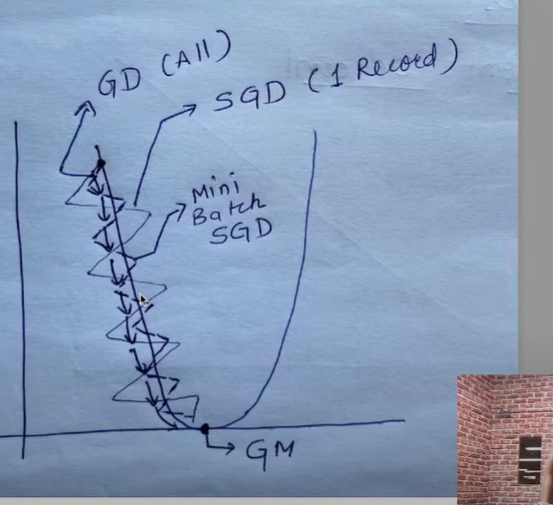 GD (All)
SGD (1 Record)
Mini
Batch
SGD
GM